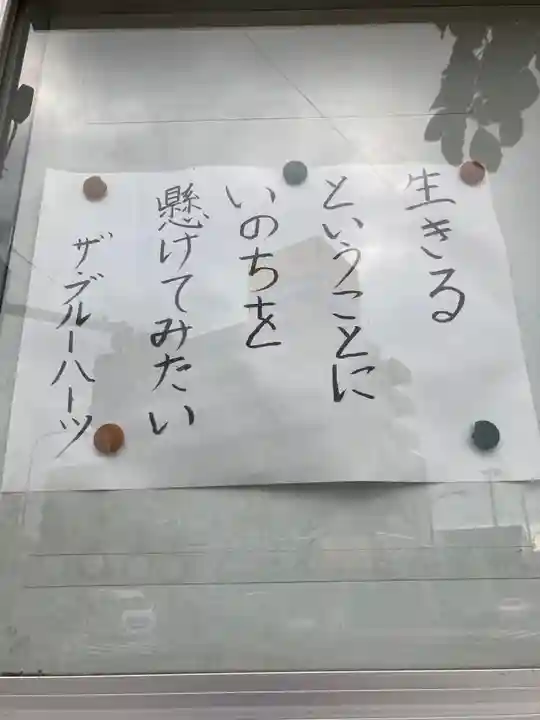 生きる
ということに
いのちを
懸けてみたい
ザ・ブルーハーツ